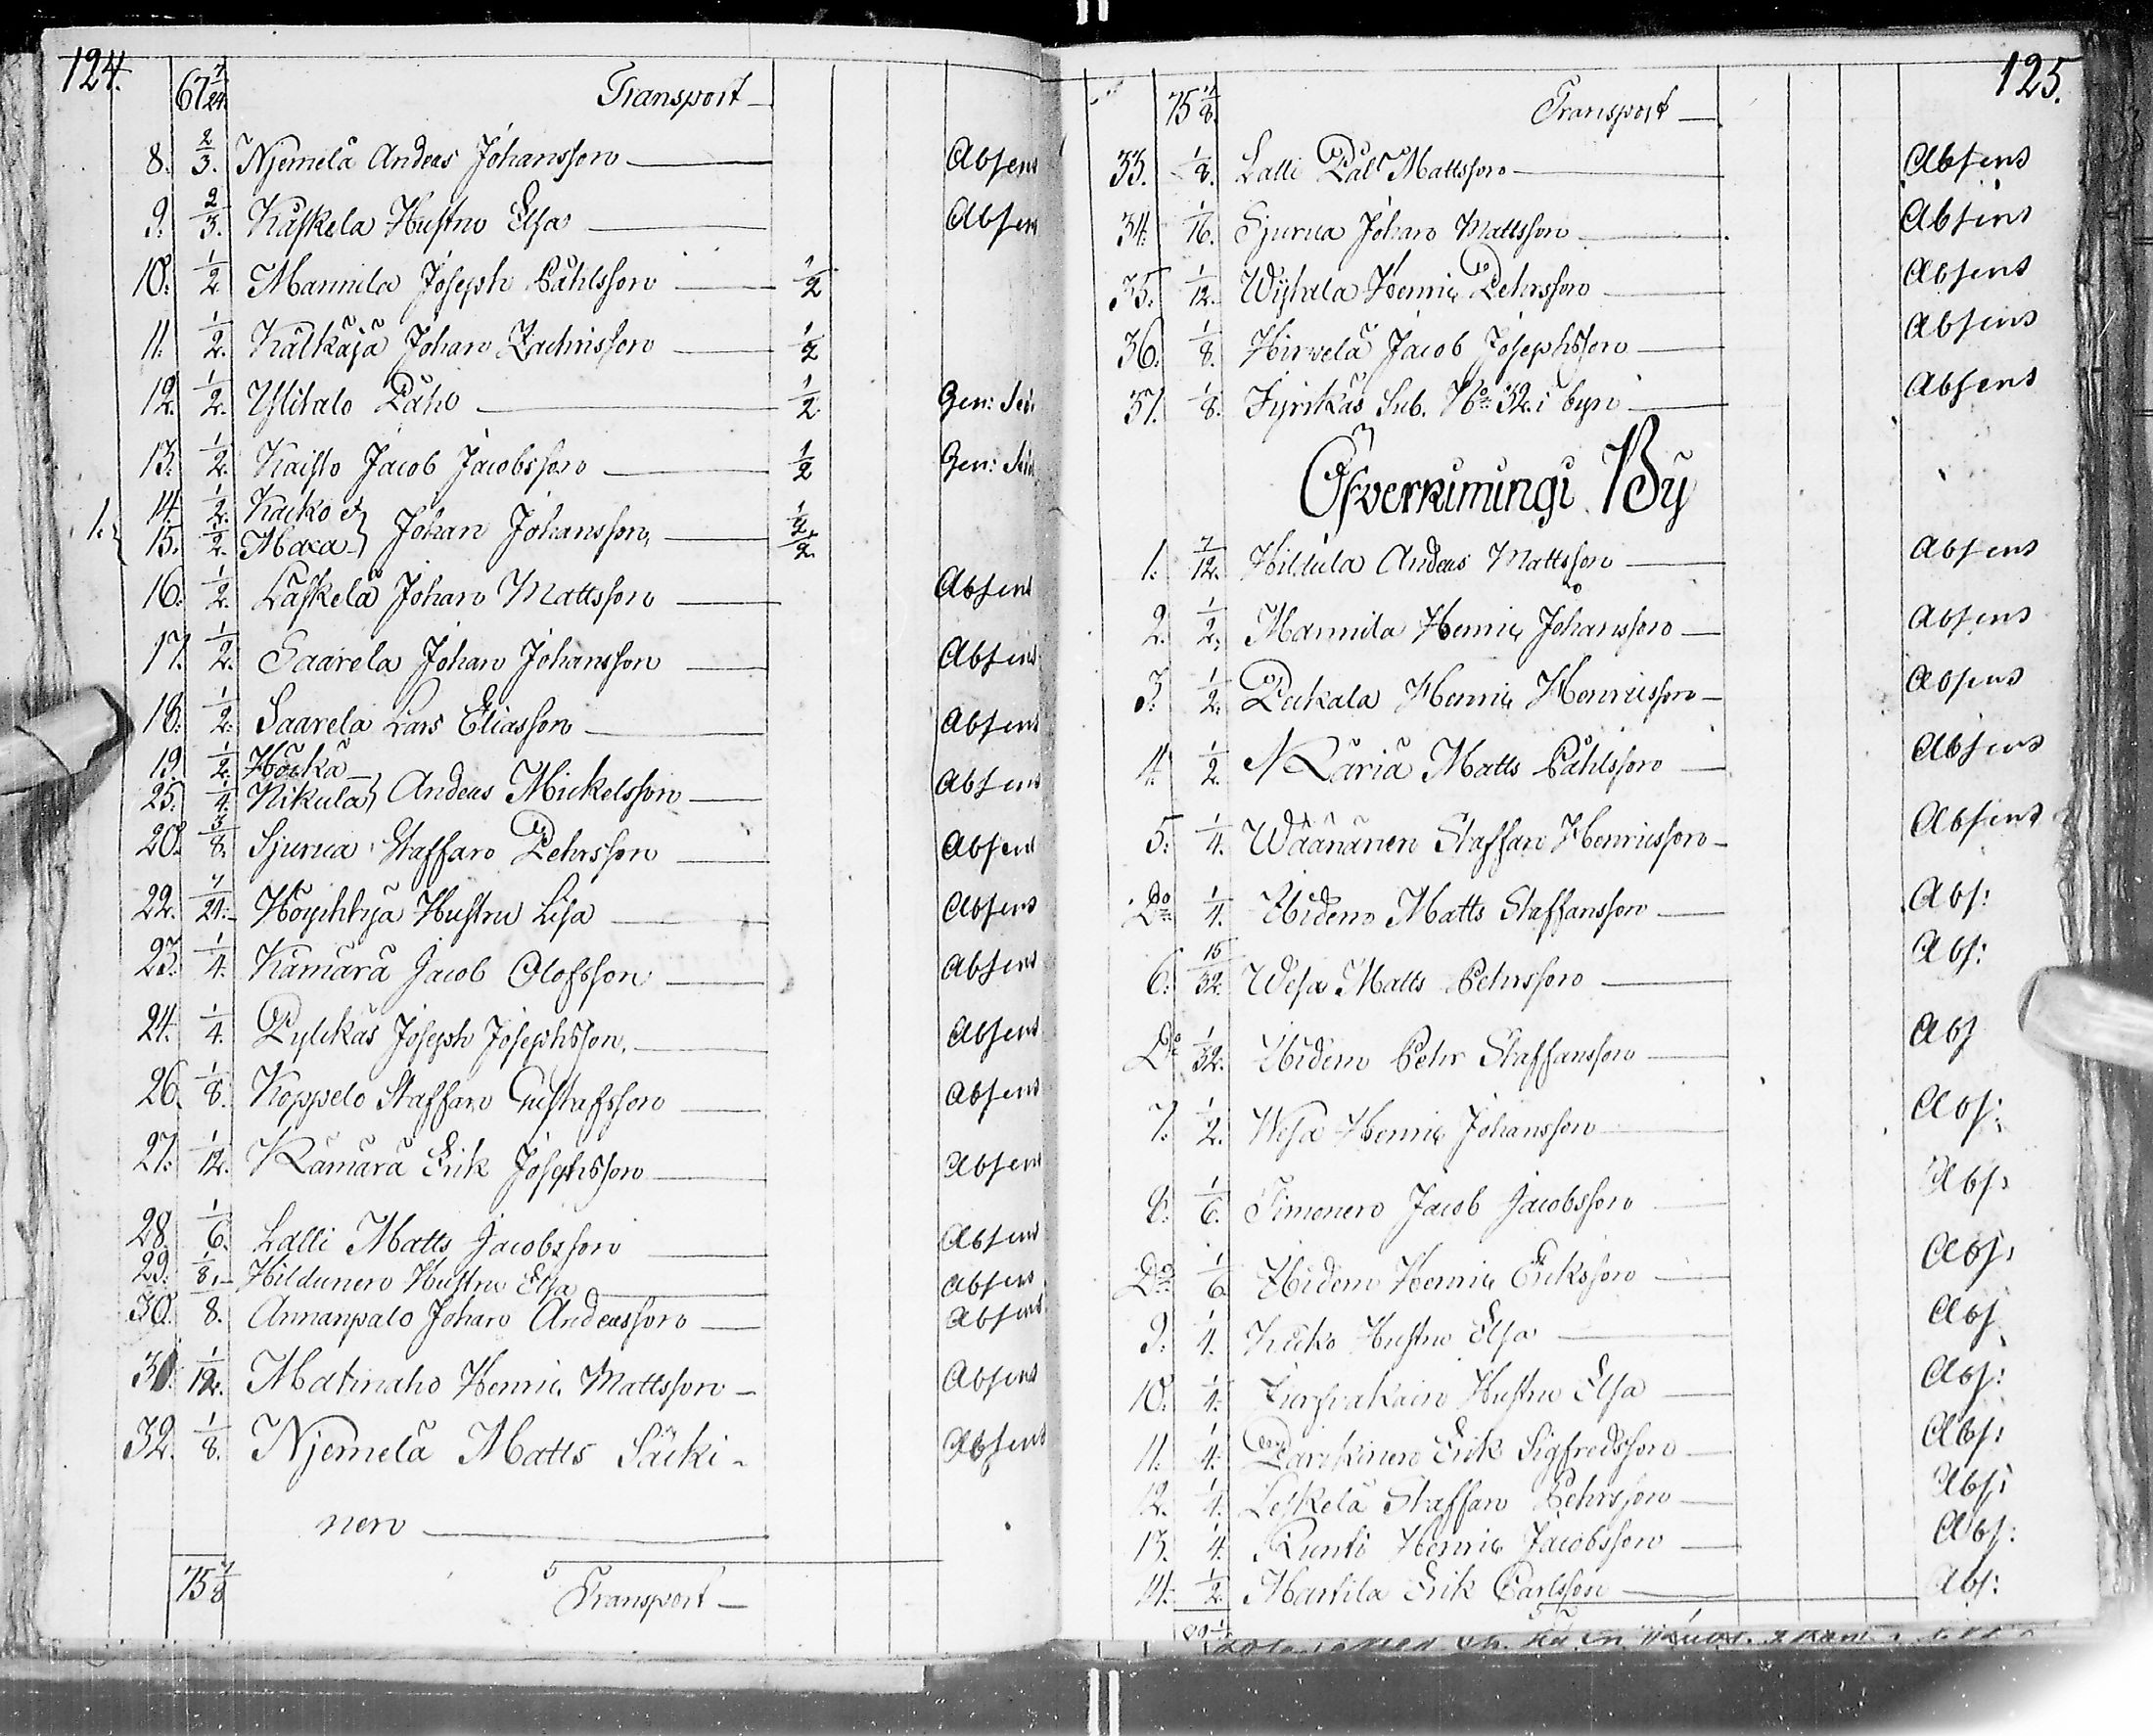 124.
67 7/24. Transport
8. 2/3. Njemelä Andeas Johansson Absens
9. 2/3. Kåskela Hustru Elsa Absens
10. 1/2. Mannila Joseph Påhlsson 1/2
11. 1/2. Kälkäjä Johan Zachrisson 1/2
12. 1/2. Ylitalo Påho 1/2 Gen:
13. 1/2. Kaisto Jacob Jacobsson 1/2 Gen:
14. 1/2. Kaiko et
1. 15. 1/2. Maxa Johan Johansson 1/2 1/2
16. 1/2. Läskelä Johan Mattsson Absens
17. 1/2. Saarela Johan Johansson Absens
18. 1/2. Saarela Lars Eliasson Absens
19. 1/2. Höckä
25. 1/4. Nikula Andeas Mickelsson Absens
20. 3/8. Sjurua Staffan Pehrsson Absens
22. 7/24. Höyhtyä Hustru Lisa Absens
23. 1/4. Kämärä Jacob Olofsson Absens
24. 1/4. Pylckäs Joseph Josephsson Absens
26. 1/8. Koppelo Staffan Gustafsson Absens
27. 1/12. Kämärä Erik Josephsson Absens
28. 1/6. Lalli Matts Jacobsson Absens
29. 1/8. Hildunen Hustru Elsa Absens
30. 1/8. Annanpalo Johan Andeasson Absens
31. 1/12. Matinaho Henric Mattsson Absens
32. 1/8. Njemelä Matts Säcki-
nen Absens
75 7/8 Transport
125.
75 7/8. Transport
33. 1/8. Lalli Pål Mattsson Absens
34. 1/16. Sjurua Johan Mattsson Absens
35. 1/12. Wyhala Henric Pehrsson Absens
36. 1/8. Hirvelä Jacob Josephsson Absens
37. 1/8. Jyrkäs Sub. No 32. i byn Absens
Öfverkimingi By
1. 7/12. Hildula Andeas Mattsson Absens
2. 1/2. Mannila Henric Johansson Absens
3. 1/2. Peckala Henric Henricsson Absens
4. 1/2. Käriä Matts Påhlsson Absens
5. 1/4. Wäänänen Staffan Henricsson Absens
Do 1/4. Ibidem Matts Staffansson Abs:
6. 15/32. Wesa Matts Pehrsson Abs:
Do 1/32. Ibidem Pehr Staffansson Abs
7. 1/2. Wesa Henric Johansson Abs:
8. 1/6. Timonen Jacob Jacobsson Abs:
Do 1/6 Ibidem Henric Ericksson Abs:
9. 1/4. Kucko Hustru Elsa Abs
10. 1/4. Hustru Elsa Abs:
11. 1/4. Erik Sigfredsson Abs:
12. 1/4. Leskelä Staffan Pehrsson Abs:
13. 1/4. Runti Henric Jacobsson Abs:
14. 1/2. Martila Erik Carlsson Abs: